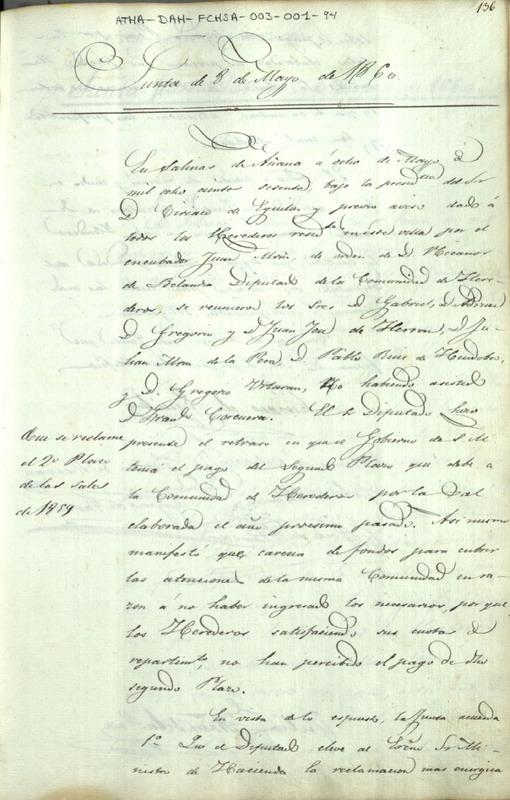 ATHA-DAH-FCHSA-003-001-94
136
Junta de 8 de Mayo de 1860
En Salinas de Añana á ocho de Mayo de
mil ocho cientos sesenta, bajo la presiden del Sr
D. Ciriaco de Eguiluz y previo aviso dado á
todos los Herederos resid en esta villa por el
encubador Juan Mrñ, de orden de D. Nicanor
de Belandia Diputado de la Comunidad de Here
deros, se reunieron los Sres D Gabriel, D
D Gregorio y D Juan José de Herran, D Ju
lian Mrñ de la Pera, D. Pablo Ruiz de Huidobro,
y D. Gregorio Urtaran, No habiendo asistido
D Corcuera. El Sr Diputado hizo
Que se reclame
el 2º Plazo
de las sales
de 1859
presente el retraso en que el Gobierno de S. M
tenia el pago del Segundo Plazo que debe a
la Comunidad de Herederos por la sal
elaborada el año procsimo pasado. Asi mismo
manifestó que carecia de fondos para cubrir
las atenciones de la misma Comunidad en ra
zon á no haber ingresado los necesarios, por que
los Herederos satisfaciendo sus cuotas de
repartimto, no han percibido el pago de dho
segundo Plazo.
En vista de lo espuesto, la Junta acuerda
1º Que el Diputado eleve al Escmo Sr Mi
nistro de Hacienda la reclamacion mas energica